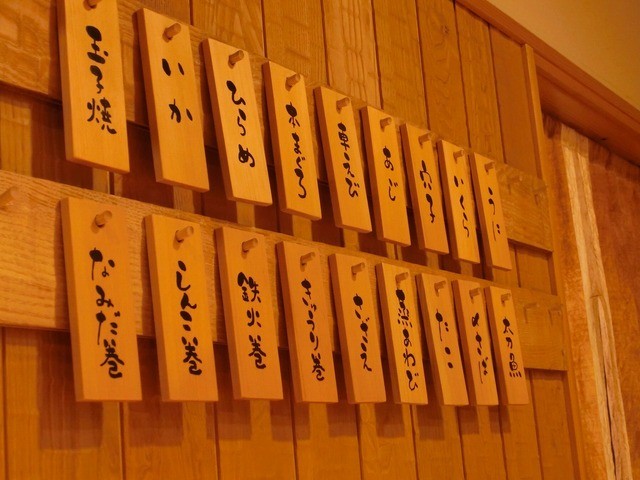 うに
いくら
穴子
あじ
車えび
本まぐろ
ひらめ
いか
玉子焼
太刀魚
〆さば
たこ
あわび
さざえ
きゅうり巻
鉄火巻
しんこ巻
なみだ巻